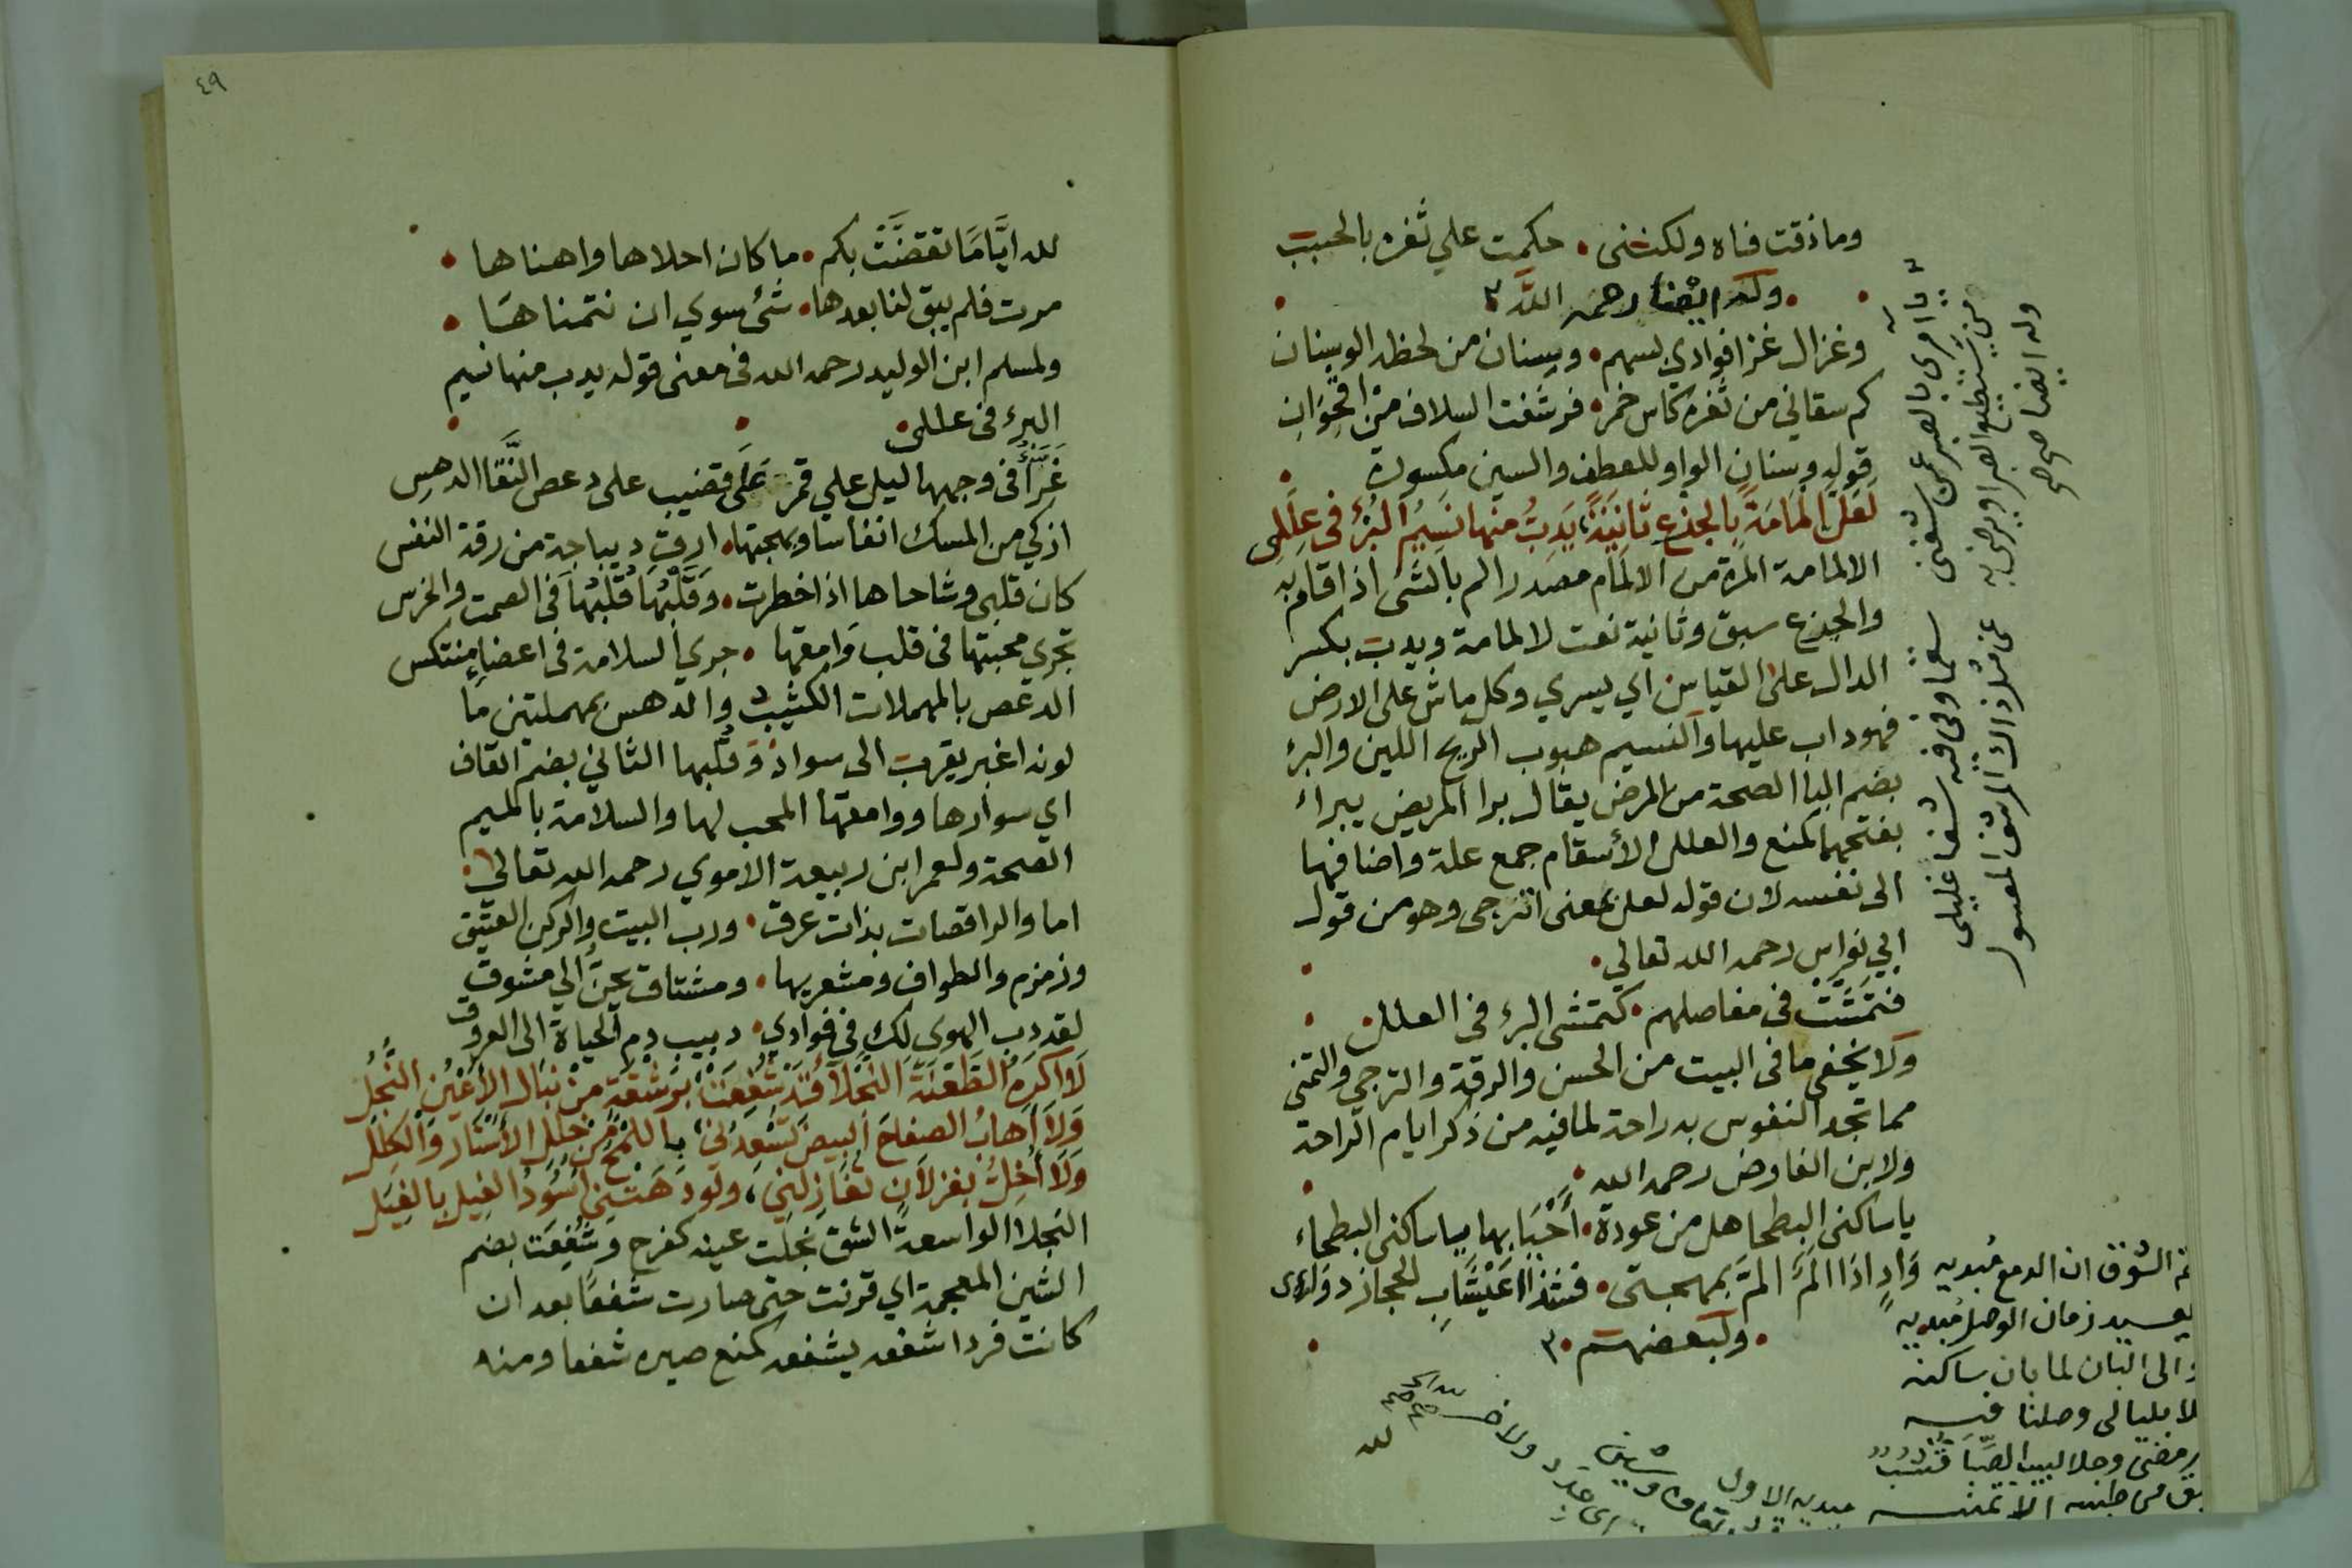 وما ذقت فاه ولكنني • حكمت علي ثغره بالحبب
• وله ايضا رحمه الله •
وغزال غزا فوادي بسهم • وسنان من لحظه الوسنان
كم سقاني من ثغره كاس خمر • فرشفت السلاف من اقحوان
قوله وسنان الواو للعطف والسين مكسورة
لَعَلَّ اِلمَامَةً بِالجذعِ ثانِيَةً، يَدِبُّ منها نَسِيمُ البُرْءِ في عِلَلِي
الالمامة المرة من الالمام مصدر الم بالشئ اذا اقام به
والجذع سبق وثانية نعت لالمامة ويدب بكسر
الدال على القياس اي يسري وكل ماش على الارض
فهو داب عليها والنسيم هبوب الريح اللين والبرء
بضم البا الصحة من المرض يقال برا المريض يبراء
بفتحهما كمنع والعلل الأسقام جمع علة واضافها
الى نفسه لان قوله لعل بمعنى اترجى وهو من قول
ابي نواس رحمه الله تعالي •
فتَمَشَّت في مفاصلهم • كتمشى البرء في العلل •
ولا يخفي ما في البيت من الحسن والرقة والترجي والتمني
مما تجد النفوس به راحة لما فيه من ذكر ايام الراحة
ولابن الفارض رحمه الله •
يا ساكني البطحا هل من عودة • أَحْيَا بها يا ساكني البطحاء
وَاِذا اذا الَمٌ المَّ بمهجتى • فشذا اعَيْشَابِ الحجاز دوائى
• ولبعضهم •
وله ايضا
سقما وفي فيه شفا غليلى
عن مثل ذاك المرشف المعسول
الشوق ان الدمع مُبديه
زمان الوصل مُبديه
الى البان لما بان ساكنه
بليالى وصلنا فيه
مبديه الاول
لله
٤٩
لله ايَّامًا تقضَّت بكم • ما كان احلاها واهناها •
مرت فلم يبق لنا بعدها • شئ سوي ان نتمناها •
ولمسلم ابن الوليد رحمه الله في معنى قوله يدب منها نسيم
البرء في عللى •
غَرَّاء في وجهها ليل علي قمر عَلَى قضيب على دعص النَّقا الدهِس
اذكي من المسك انفاسا وبهجتها • ارق ديباجة من رقة النفس
كان قلبى وشاحاها اذا خطرت • وَقَلْبُهَا قُلْبُهَا في الصمت والخرس
تجري محبتها في قلب وَامقها • جري السلامة في اعضاءِ منتكس
الدعص بالمهملات الكثيب والدهس بمهملتين ما
لونه اغبر يقرب الى سواد وقُلبها الثاني بضم القاف
اي سوارها ووامقها المحب لها والسلامة بالميم
الصحة ولعمر ابن ربيعة الاموي رحمه الله تعالي •
اما والراقصات بذات عرق • ورب البيت والركن العتيق
وزمزم والطواف ومشعريها • ومشتاق يحنُّ الي مشوق
لقد دب الهوى لكِ في فوادي • دبيب دم الحياة الى العروق
لَا اكرَهُ الطَّعْنَةَ النجْلَا قَدْ شُفِعَتْ، بِرَشْقَةٍ مِنْ نبَالِ الأَعْيُنِ النُّجُلِ
وَلَا أَهَابُ الصفاحَ البيضَ تُسْعِدُنِي، بِاللمْحِ مِنْ خَلَلِ الأسْتَارِ وَالكِلَلِ
وَلَا أُخِلُّ بغزلَانٍ تُغَازِلُنِي، ولو دَهَتْنِي أُسُودُ الغِيلِ بِالغِيَلِ
النجلا الواسعة الشق نجلت عينه كفرح وشُفِعَت بضم
الشين المعجمة اي قرنت حتى صارت شفعًا بعد ان
كانت فردا شفعه يشفعه كمنع صيره شفعا ومنه